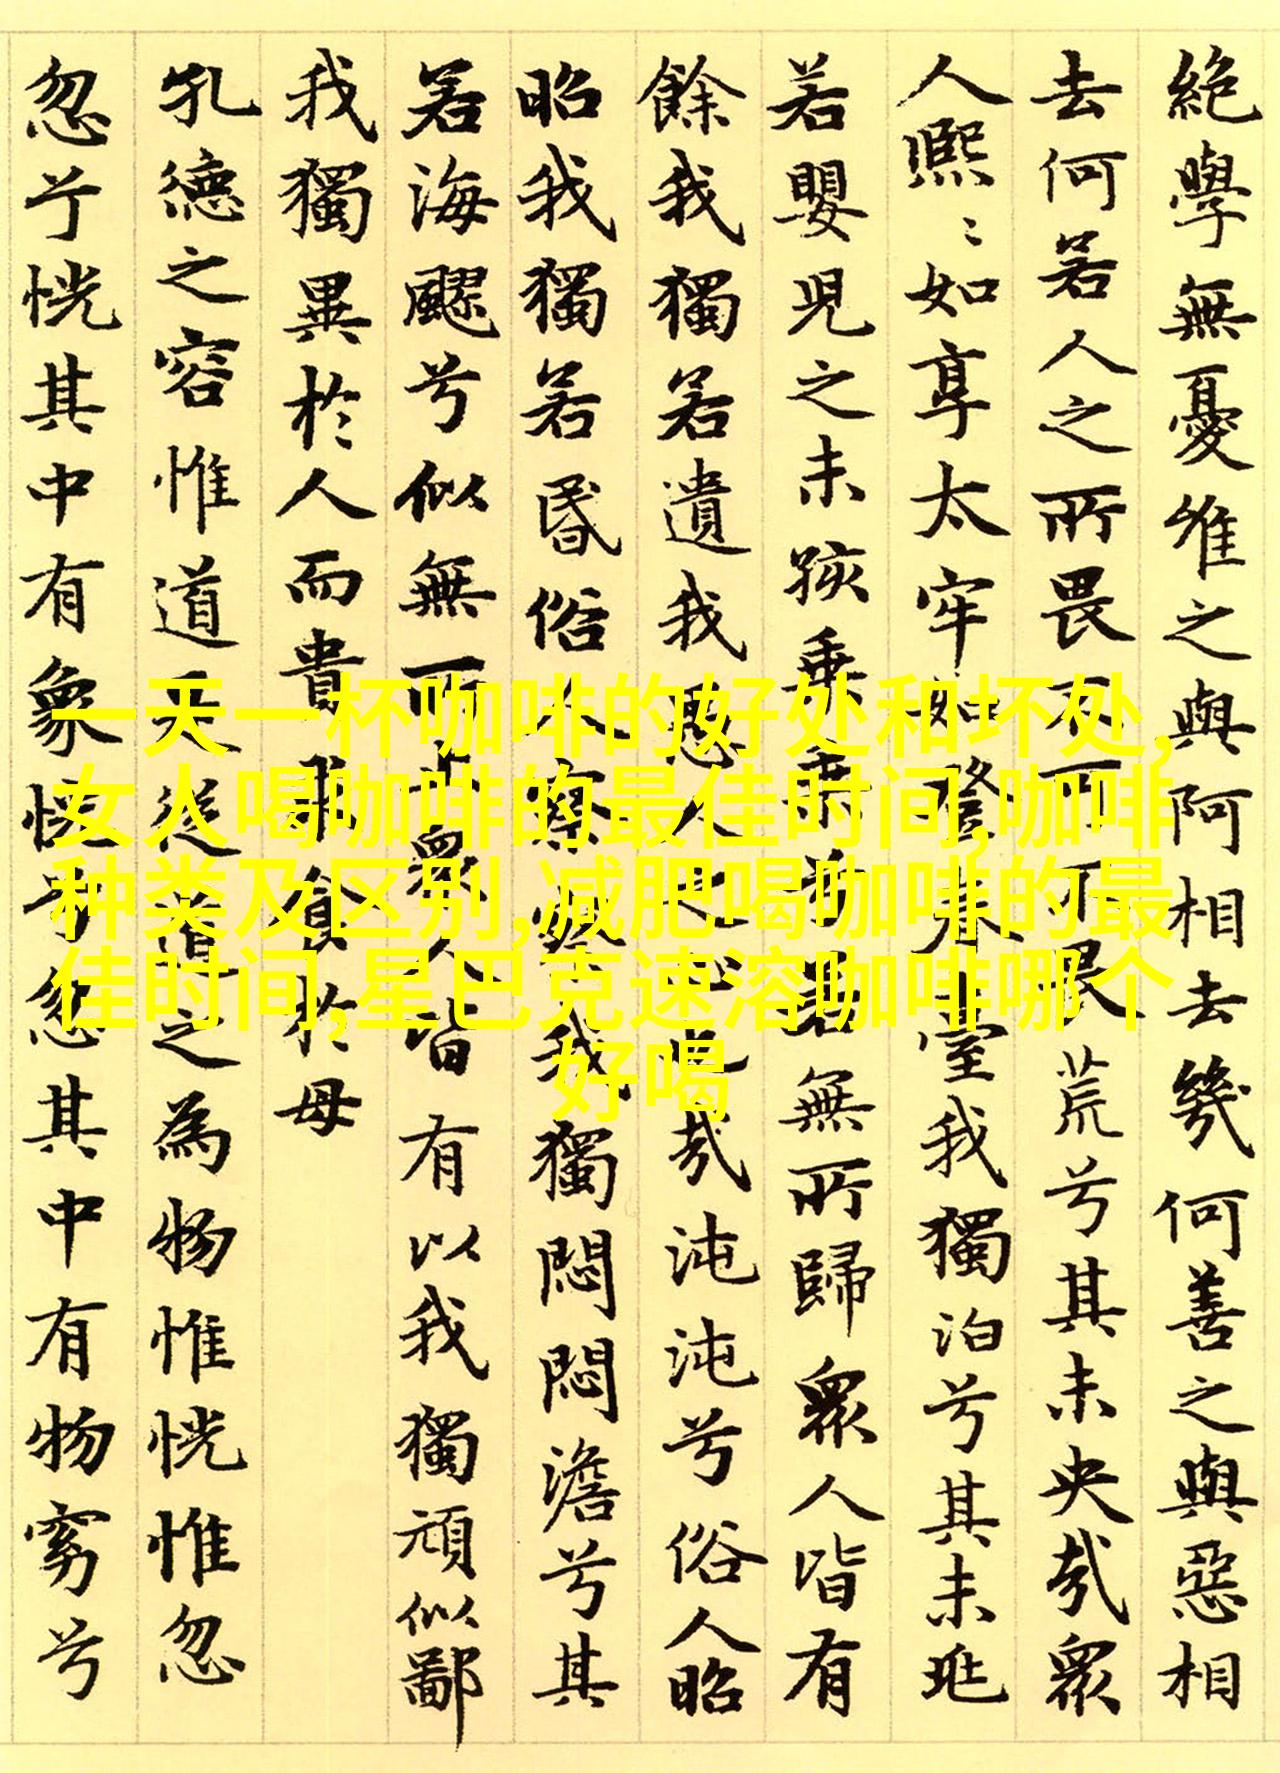 絶學無憂唯之與阿相去幾何善之與惡相
去何若人之所畏不可不畏荒兮其未央哉眾
人熙〻如享太牢如登春臺我獨泊兮其未兆
若嬰兒之未孩乘乘兮若無所歸眾人皆有
餘我獨若遺我愚人之心也哉沌沌兮俗人昭
昭我獨若昬俗人察察我獨悶悶澹兮其
若海飂兮似無所止眾人皆有以我獨頑似鄙
我獨異於人而貴求食於母
孔德之容惟道是從道之為物惟恍惟忽
忽兮恍其中有象恍兮忽其中有物窈兮
一天一杯咖啡的好处和坏处,
女人喝咖啡的最佳时间,咖啡
种类及区别,减肥喝咖啡的最
佳时间,星巴克速溶咖啡哪个
好喝